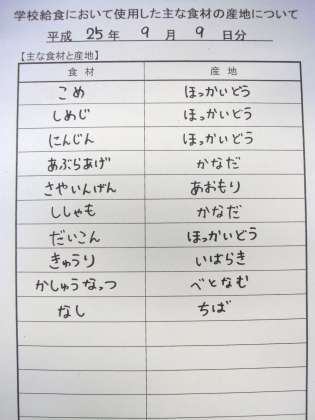 学校給食において使用した主な食材の産地について
平成 25年 9月 9日分
【主な食材と産地】
食材 産地
こめ ほっかいどう
しめじ ほっかいどう
にんじん ほっかいどう
あぶらあげ かなだ
さやいんげん あおもり
ししゃも かなだ
だいこん ほっかいどう
きゅうり いばらき
かしゅうなっつ べとなむ
なし ちば